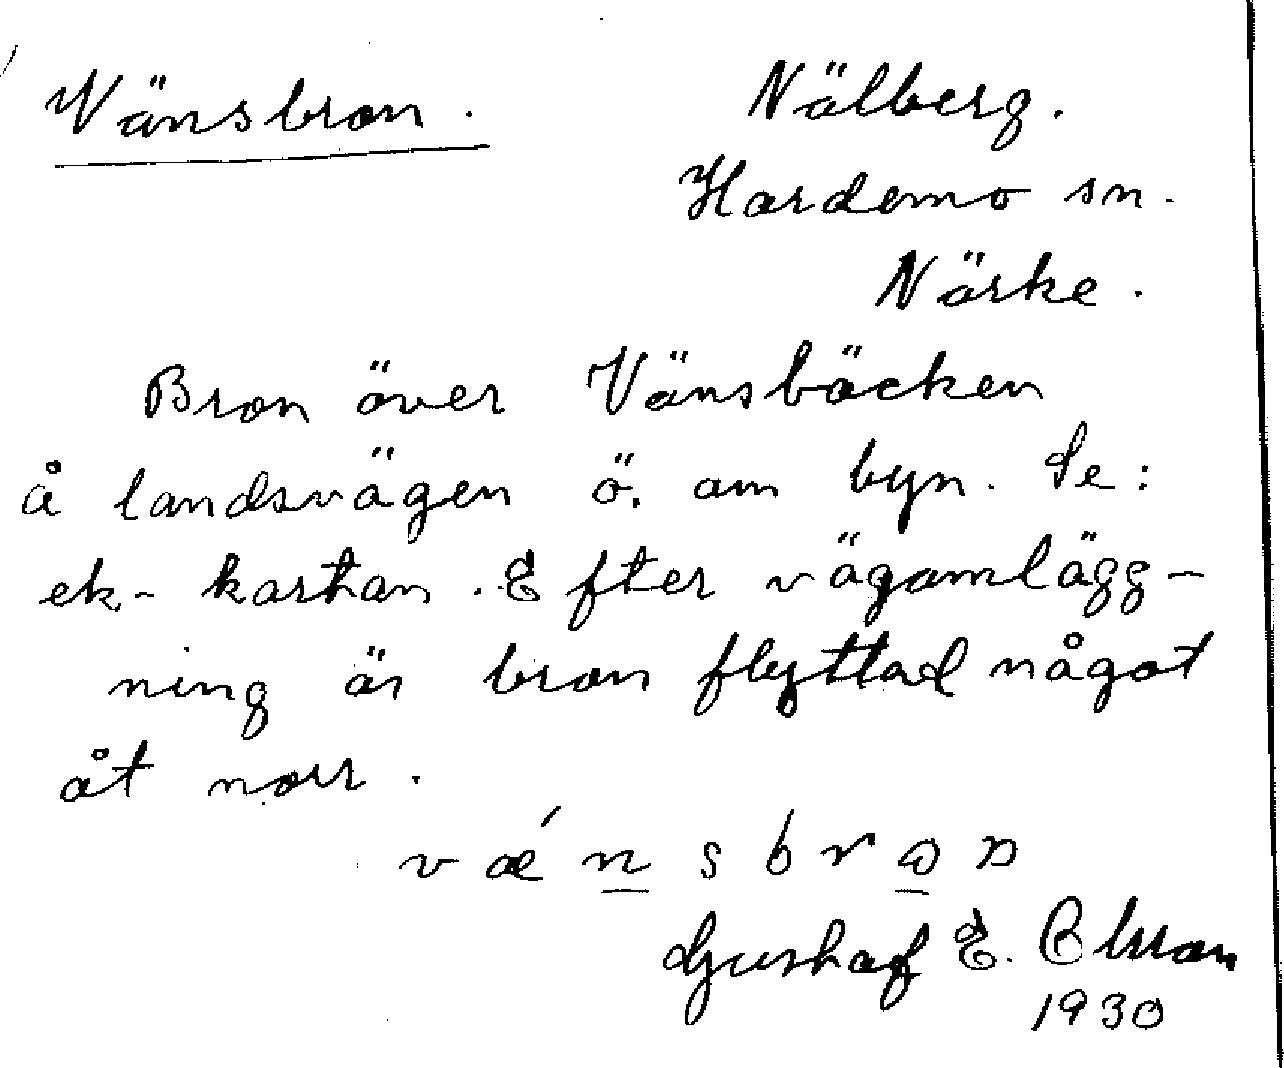 Vänsbron.
Nälberg.
Hardemo sn.
Närke.
Bron över Vänsbäcken
å landsvägen ö. om byn. Se:
ek-kartan. Efter vägomlägg-
ning är bron flyttad något
åt norr.
Gustaf E.
1930